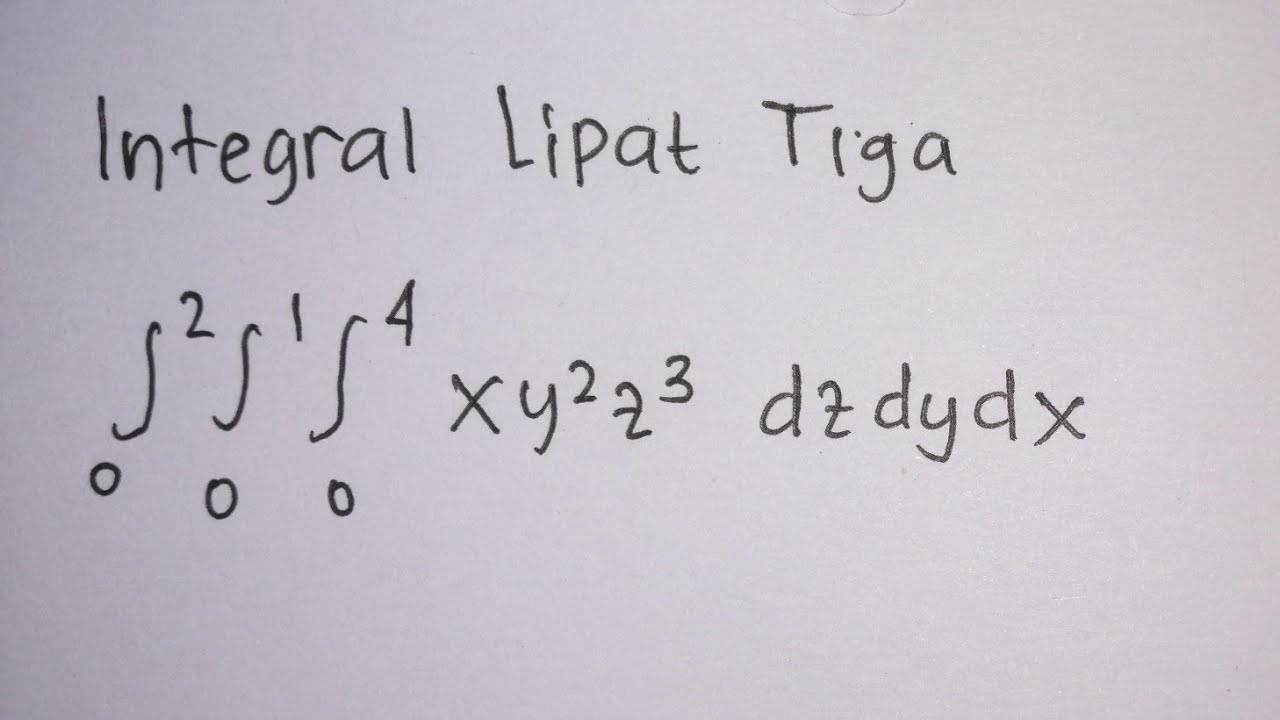 Integral Lipat Tiga
∫₀² ∫₀¹ ∫₀⁴ xy²z³ dzdydx